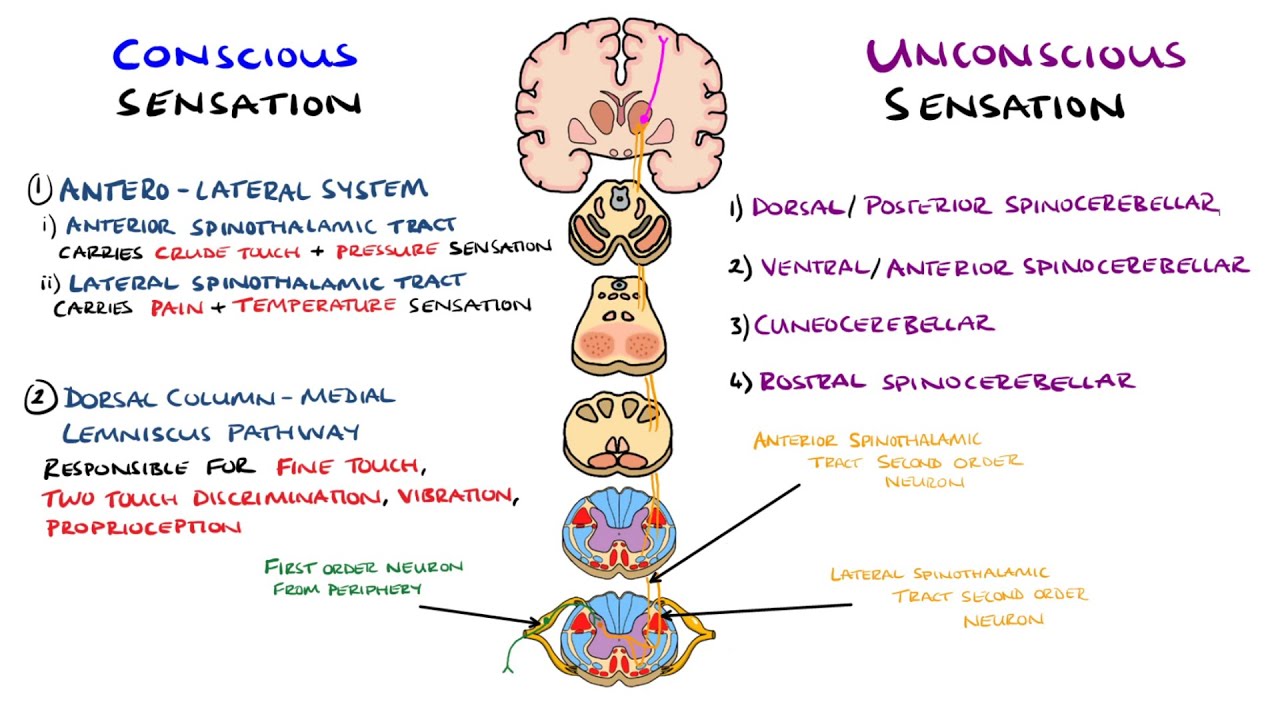 CONSCIOUS
SENSATION
① ANTERO-LATERAL SYSTEM
i) ANTERIOR SPINOTHALAMIC TRACT
CARRIES CRUDE TOUCH + PRESSURE SENSATION
ii) LATERAL SPINOTHALAMIC TRACT
CARRIES PAIN + TEMPERATURE SENSATION
② DORSAL COLUMN-MEDIAL
LEMNISCUS PATHWAY
RESPONSIBLE FOR FINE TOUCH,
TWO TOUCH DISCRIMINATION, VIBRATION,
PROPRIOCEPTION
FIRST ORDER NEURON
FROM PERIPHERY
UNCONSCIOUS
SENSATION
1) DORSAL/POSTERIOR SPINOCEREBELLAR
2) VENTRAL/ANTERIOR SPINOCEREBELLAR
3) CUNEOCEREBELLAR
4) ROSTRAL SPINOCEREBELLAR
ANTERIOR SPINOTHALAMIC
TRACT SECOND ORDER
NEURON
LATERAL SPINOTHALAMIC
TRACT SECOND ORDER
NEURON